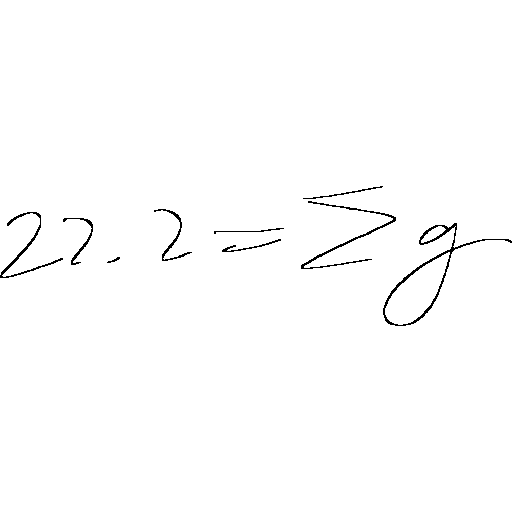 22.2 = ∑ g